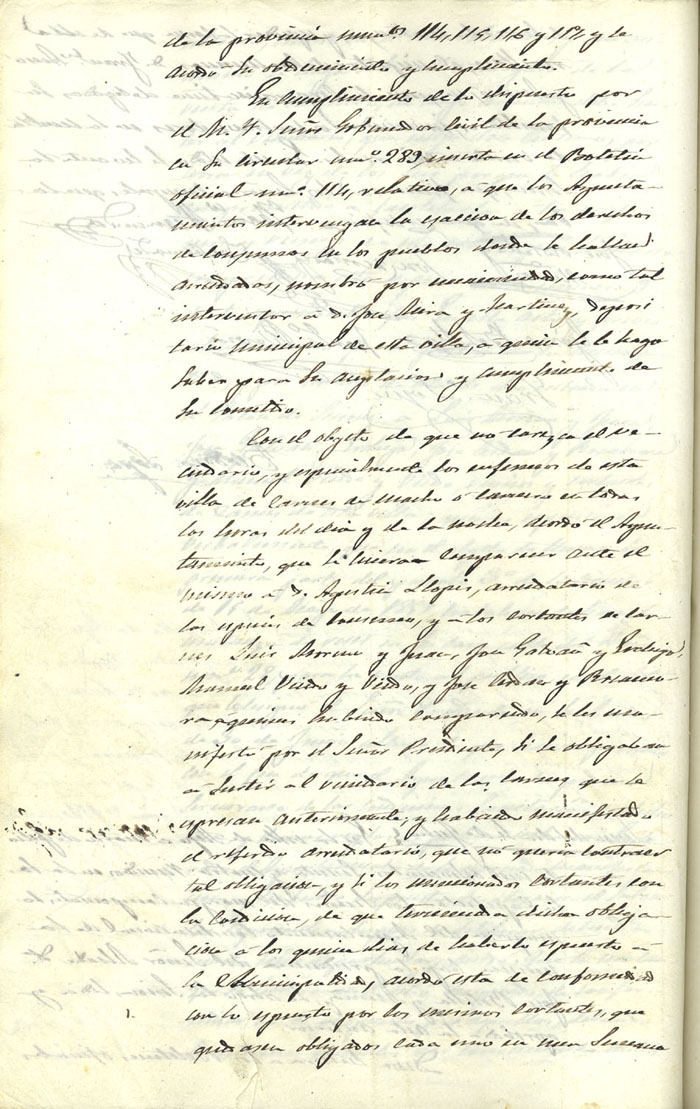 de la provincia numos 114, 115, 116 y 117 y se
acordó su obedecimiento y cumplimiento.
En cumplimiento de lo dispuesto por
el M. Y. Señor Gobernador Civil de la provincia
en su circular nuo. 289, inserta en el Boletin
oficial nuo. 114, relativa, a que los Ayunta-
mientos intervengan la esaccion de los derechos
de consumos en los pueblos donde se hallan
arrendados, nombró por unanimidad, como tal
interventor a D. Jose Mira y Martinez, deposi
tario municipal de esta villa, a quien se le haga
saber para su aceptacion y cumplimiento de
su cometido.
Con el objeto de que no carezca el ve-
cindario, y especialmente los enfermos de esta
villa de carnes de macho ó carnero en todas
las horas del dia y de la noche, acordó el Ayun-
tamiento, que se hiciera comparecer ante el
mismo a D. Agustin Llopis, arrendatario de
las especies de consumo, y a los cortantes de car-
nes Luis Moreno y Juan, Jose Galvañ y
Manuel Vicedo y Vicedo, y Jose y
a quienes habiendo comparecido, se les ma-
nifestó por el Señor Presidente, si se obligaban
a surtir al vecindario de las carnes que se
espresan anteriormente; y habiendo manifestado
el referido arrendatario, que no queria contraer
tal obligacion, y si los mencionados cortantes con
la condicion, de que terminando dicha obliga-
cion a los quince dias, de haberlo espuesto a
la Municipalidad, acordó esta de conformidad
con lo espuesto por los mismos cortantes, que
quedasen obligados cada uno en una semana